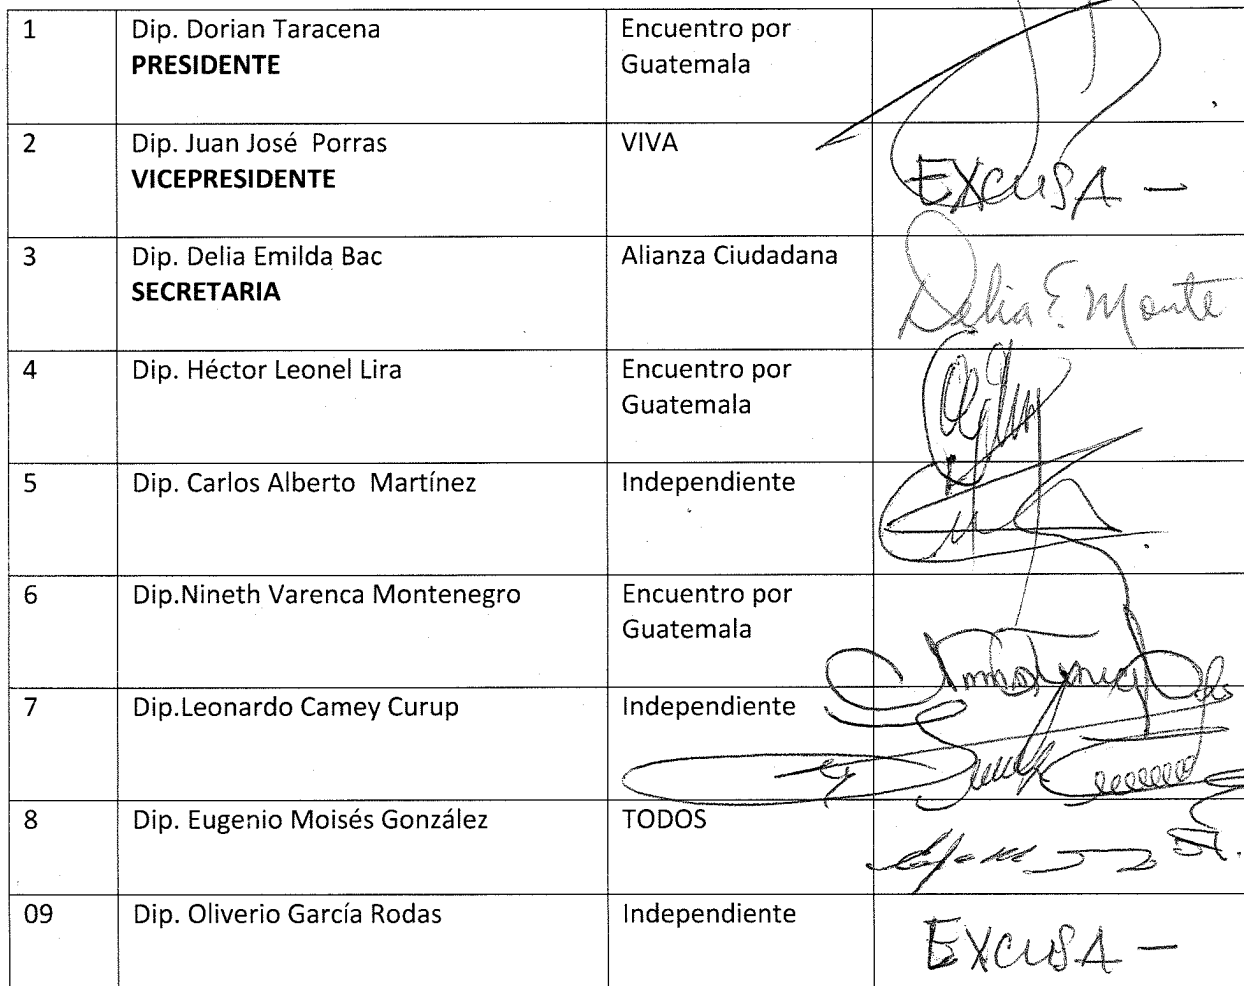 1 Dip. Dorian Taracena Encuentro por
PRESIDENTE Guatemala
2 Dip. Juan José Porras VIVA
VICEPRESIDENTE EXCUSA -
3 Dip. Delia Emilda Bac Alianza Ciudadana
SECRETARIA Delia E. Monte
4 Dip. Héctor Leonel Lira Encuentro por
Guatemala
5 Dip. Carlos Alberto Martínez Independiente
6 Dip.Nineth Varenca Montenegro Encuentro por
Guatemala
7 Dip.Leonardo Camey Curup Independiente
8 Dip. Eugenio Moisés González TODOS
09 Dip. Oliverio García Rodas Independiente
EXCUSA -